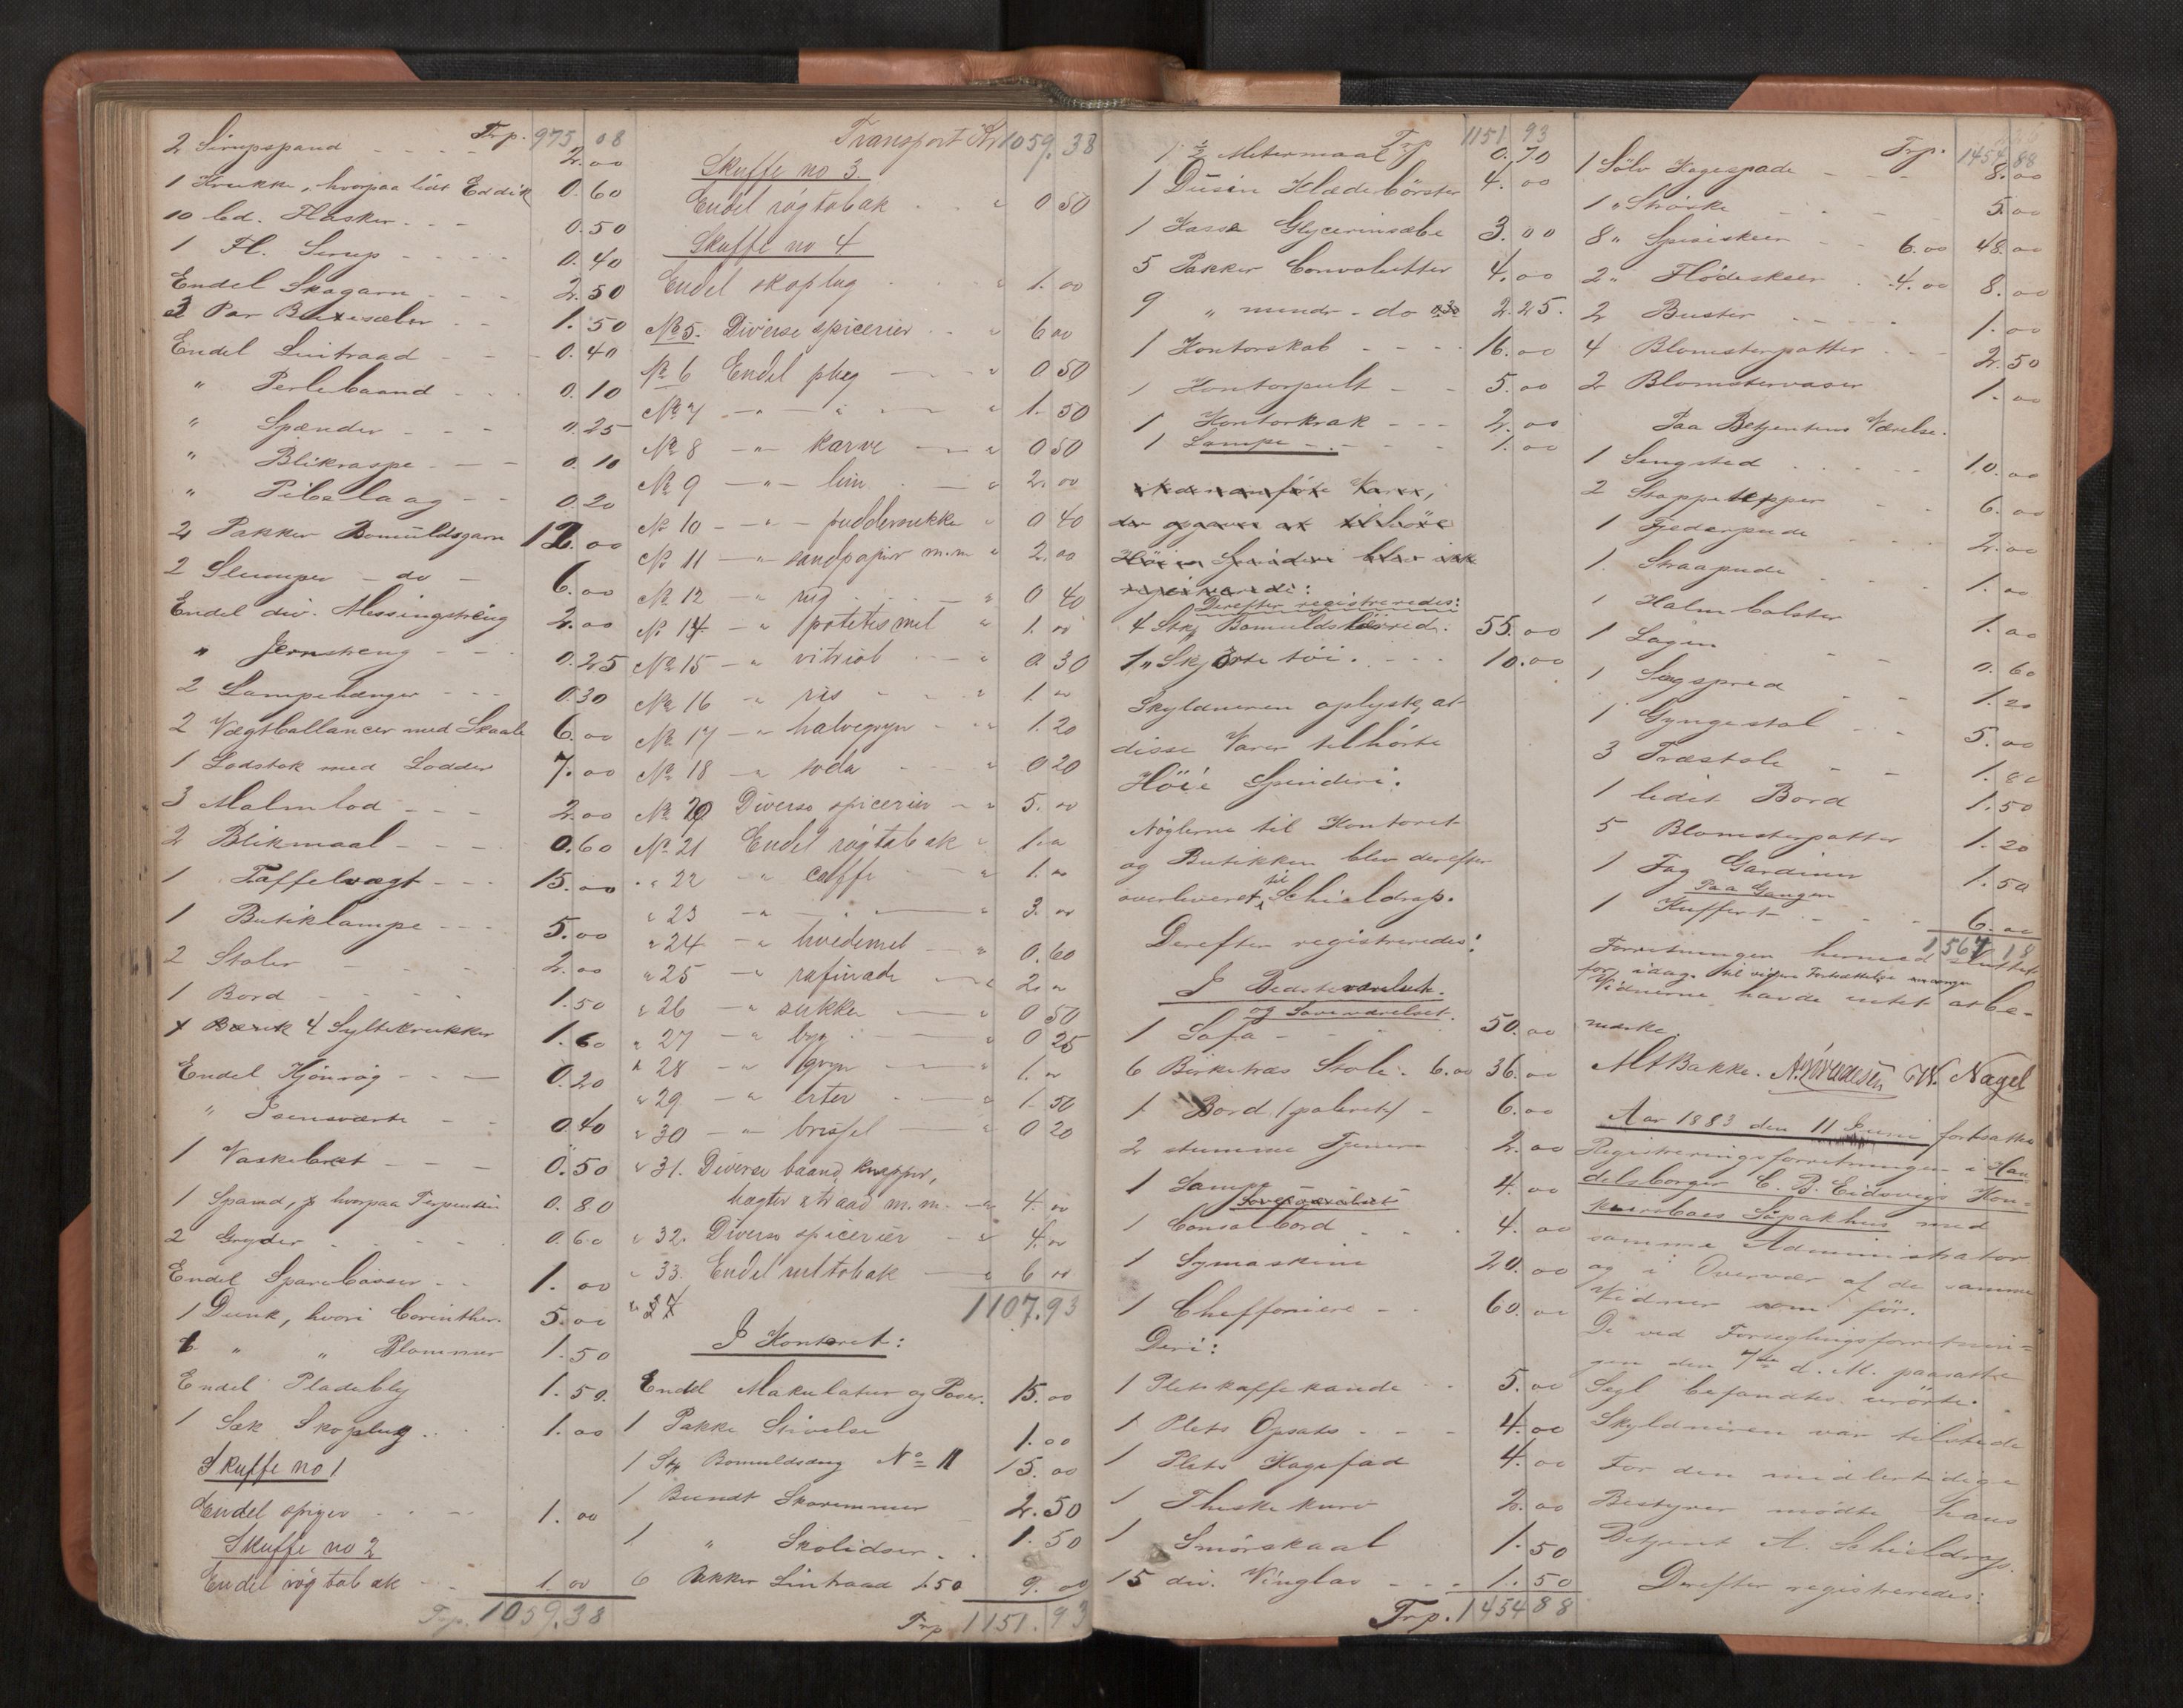 Trp. 975 08
2 Sirupspand - - - - 2.00
1 Krukke, hvorpaa lidt Eddik 0.60
10 Cd. Flasker - - - 0.50
1 Fl. Serup - - - - 0.40
Endel Skagarn - - - 2.50
3 Par Buxesæler - - 1.50
Endel Lintraad - - - 0.40
" Perlebaand - - - 0.10
" Spænder - - - 0.25
" Blikraspe - - - 0.10
" Pibelaag - - 0.20
2 Pakker Bomuldsgarn 12.00
2 Slumper - do - 6.00
Endel div. Messingstreng 2.00
" Jernstreng - - - 0.25
2 Lampehænger - - - 0.30
2 Vægtballancer med Skaale 6.00
1 Lodstok med Lodder 7.00
3 Malmlod - - - 2.00
2 Blikmaal - - - 0.60
1 Taffelvægt - - - 15.00
1 Butiklampe - - - 5.00
2 Stoler - - - - 2.00
1 Bord - - - - 1.50
4 Syltekrukker 1.60
Endel Kjønrøg - - - 0.20
" Isensværte - - 0.40
1 Vaskebræt - - - 0.50
1 Spand, hvorpaa Terpentin 0.80
2 Gryder - - - - 0.60
Endel Sparebøsser - - 1.00
1 Dunk, hvori Corinther. 5.00
" " Blommer 1.50
Endel Pladebly 1.50.
1 Sæk Skoplug . . . 1.00
Skuffe no 1
Endel spiger . . - - 1.00
Skuffe no 2
Endel røgtobak - - 1.00
Trp. 1059.38
Transport Kr 1059.38
Skuffe no 3.
Endel røgtabak . . " 0 50
Skuffe no 4
Endel skoplug . . " 1.00
No 5. Diverse spicerier . . " 6 00
No 6 Endel plug — " 0 50
No 7 - " - " — " 1.50
No 8 - " - karve — " 0 50
No 9 - " - lim . — " 2.00
No 10 - " - puddersukke " 0 40
No 11 - " - sandpapir m.m " 2.00
No 12 - " rug . . . — " 0 40
No 14 - " potetesmel " 1.00
No 15 - " vitriol . . — " 0 30
No 16 - " ris - - - " 1.00
No 17 - " halvegryn - - " 1.20
No 18 - " soda - - - " 0 20
No 20 Diverse spicerier - " 5.00
No 21 Endel røgtobak " 1.00
" 22 - " caffe — " 1.00
" 23 - " - " — " 3.00
" 24 - " hvedemel — " 0.60
" 25 - " rafinade — " 2.00
" 26 - " sukker — " 0 50
" 27 - " byg . — " 0 25
" 28 - " gryn — " 1.00
" 29 - " erter . — " 1.50
" 30 - " brissel — " 0 20
" 31. Diverse baand, knapper,
hægter & traad m.m. - " 4.00
" 32. Diverse spicerier - " 4.00
" 33. Endel rultobak — " 6 00
1107.93
I Kontoret:
Endel Makulatur og Poser. 15.00
1 Pakke Stivelse 1.00
1 Stk Bomuldsdug No 11 15.00
1 Bundt Skoremmer 2.50
1 " Skolidser . . 1.50
6 Pakker Lintraad 1.50 9.00
Trp 1151.93
Trp 1151 93
1 ½ Metermaal 0.70
1 Dusin Klædebørster 4.00
1 Kasse Glycerinsæbe 3.00
5 Pakker Convolutter 4.00
9 " mindr - do 2.25.
1 Kontorskab - - - - 16.00
1 Kontorpult - - 5.00
1 Kontorkrak - - - 2.00
1 Lampe - . - - - 1.00
Derefter registreredes:
4 Stkr Bomuldslærred. 55.00
1 " Skjørte tøi. - - - 10.00
Skyldneren oplyste, at
disse Varer tilhørte
Höie Spinderi.
Nøglerne til Kontoret
og Butikken blev derefter
overleveret til Schieldrop.
Derefter registreredes:
I Bedsteværelset.
og Soveværelset.
1 Sofa - - - 50.00
6 Birketræs Stole. 6.00 36.00
1 Bord (poleret) - 6.00
2 stumme Tjenere 2.00
1 Lampe 4.00
1 Consolbord - - . 4.00
1 Symaskine 20.00
1 Cheffoniere - - 60.00
Deri:
1 Pletskaffekande - - 5.00
1 Plets Opsats - - - 4.00
1 Plets Kagefad 4.00
1 Theskekurv 2.00
1 Smørskaal 1.50
15 div. Vinglas - - - 1.50
Trp. 1454 88
Trp. 1454 88
1 Sölv Kagespade - - - 8.00
1 " Strøske - - - 5.00
8 " Spiseskeer - - 6.00 48.00
2 " Flödeskeer . 4.00 8.00
2 Buster - - - - 1.00
4 Blomsterpotter - - - 2.50
2 Blomstervaser 1.00
Paa Betjentens Værelse.
1 Sengsted . . . . . 10.00
2 Stoppetepper - - 6.00
1 Fjederpude - - - 2.00
1. Straapude - - - 1.00
1 Halmbolster 1.00
1 Lagen - - 0.60
1 Sengspred - - 1.20
1 Gyngestol - - - 5.00
3 Træstole - - 1.80
1 lidet Bord 1.50
5 Blomsterpotter 1.20
1 Fag Gardiner 1.50
Paa Gangen
1 Kuffert - - - - 6.00
1567 18
Forretningen hermed sluttet
for idag. til videre Fortsættelse
Vidnerne havde intet at be-
mærke.
Alt Bakke. W. Nagel
Aar 1883 den 11 Juni fortsattes
Registreringsforretningen i Han-
delsborger C. B. Eidsvigs Kon-
kursboes Söpakhus med
samme Administrator
og i Overvær af de samme
Vidner som för.
De ved Forseglingsforretnin-
gen den 7de d. M. paasatte
Segl befandtes urörte.
Skyldneren var tilstede
For den midlertidige
Bestyrer mödte hans
Betjent A. Schieldrop.
Derefter registreredes: